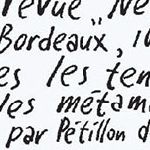 revue „ Ne
Bordeaux, 10
es les ten
les métam
par Pétillon d